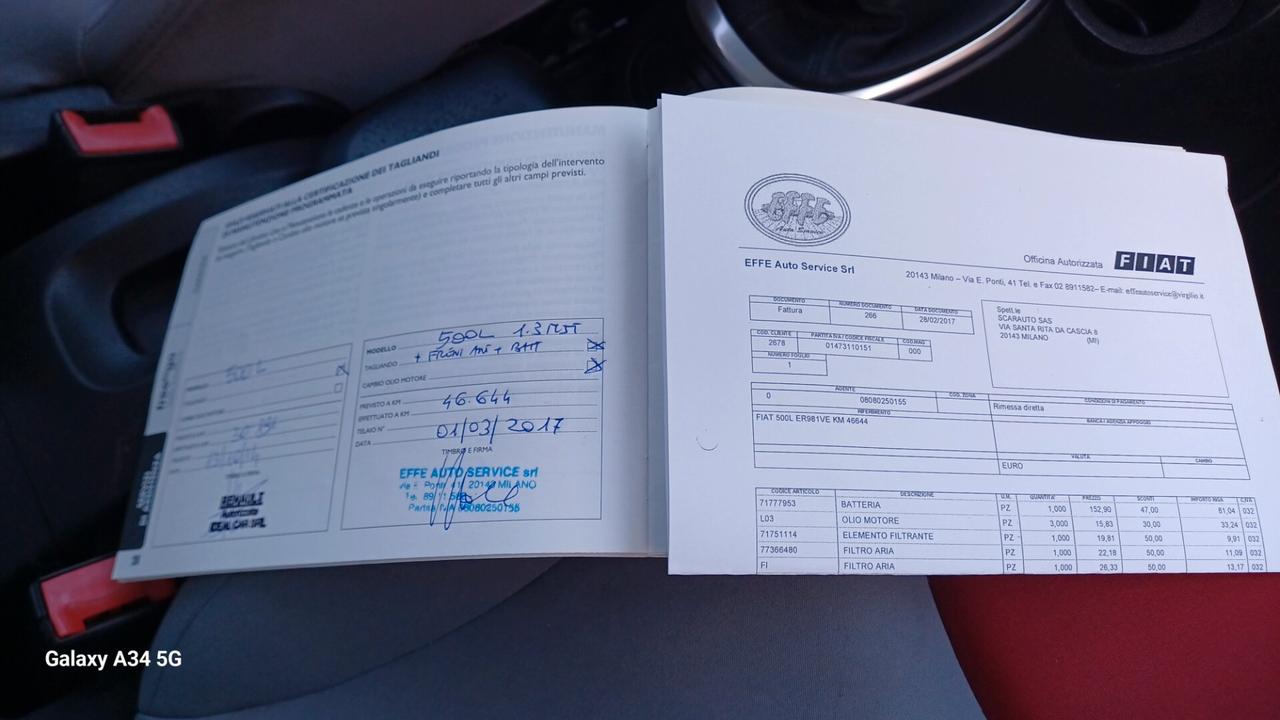 SPAZI RISERVATI ALLA CERTIFICAZIONE DEI TAGLIANDI
DI MANUTENZIONE PROGRAMMATA
da eseguire riportando la tipologia dell'intervento
e completare tutti gli altri campi previsti.
500L
RENAULT
IDEAL CAR SRL
MODELLO 500L 1.3 MJT
TAGLIANDO + FRENI ANT + BATT
CAMBIO OLIO MOTORE
PREVISTO A KM
EFFETTUATO A KM 46.644
TELAIO N°
DATA 01/03/2017
TIMBRO E FIRMA
EFFE AUTO SERVICE srl
Via E. Ponti, 41 20143 MILANO
Partita IVA 08080250155
EFFE
Auto Service
EFFE Auto Service Srl
Officina Autorizzata FIAT
20143 Milano – Via E. Ponti, 41 Tel. e Fax 02 8911582– E-mail: effeautoservice@virgilio.it
DOCUMENTO NUMERO DOCUMENTO DATA DOCUMENTO
Fattura 266 28/02/2017
COD. CLIENTE PARTITA IVA / CODICE FISCALE COD.MAG
2678 01473110151 000
NUMERO FOGLIO
1
Spett.le
SCARAUTO SAS
VIA SANTA RITA DA CASCIA 8
20143 MILANO (MI)
AGENTE COD. ZONA CONDIZIONI DI PAGAMENTO
0 08080250155 Rimessa diretta
RIFERIMENTO BANCA / AGENZIA APPOGGIO
FIAT 500L ER981VE KM 46644
VALUTA CAMBIO
EURO
CODICE ARTICOLO DESCRIZIONE U.M. QUANTITA' PREZZO SCONTI IMPORTO RIGA C.IVA
71777953 BATTERIA PZ 1,000 152,90 47,00 81,04 032
L03 OLIO MOTORE PZ 3,000 15,83 30,00 33,24 032
71751114 ELEMENTO FILTRANTE PZ 1,000 19,81 50,00 9,91 032
77366480 FILTRO ARIA PZ 1,000 22,18 50,00 11,09 032
FI FILTRO ARIA PZ 1,000 26,33 50,00 13,17 032
Galaxy A34 5G